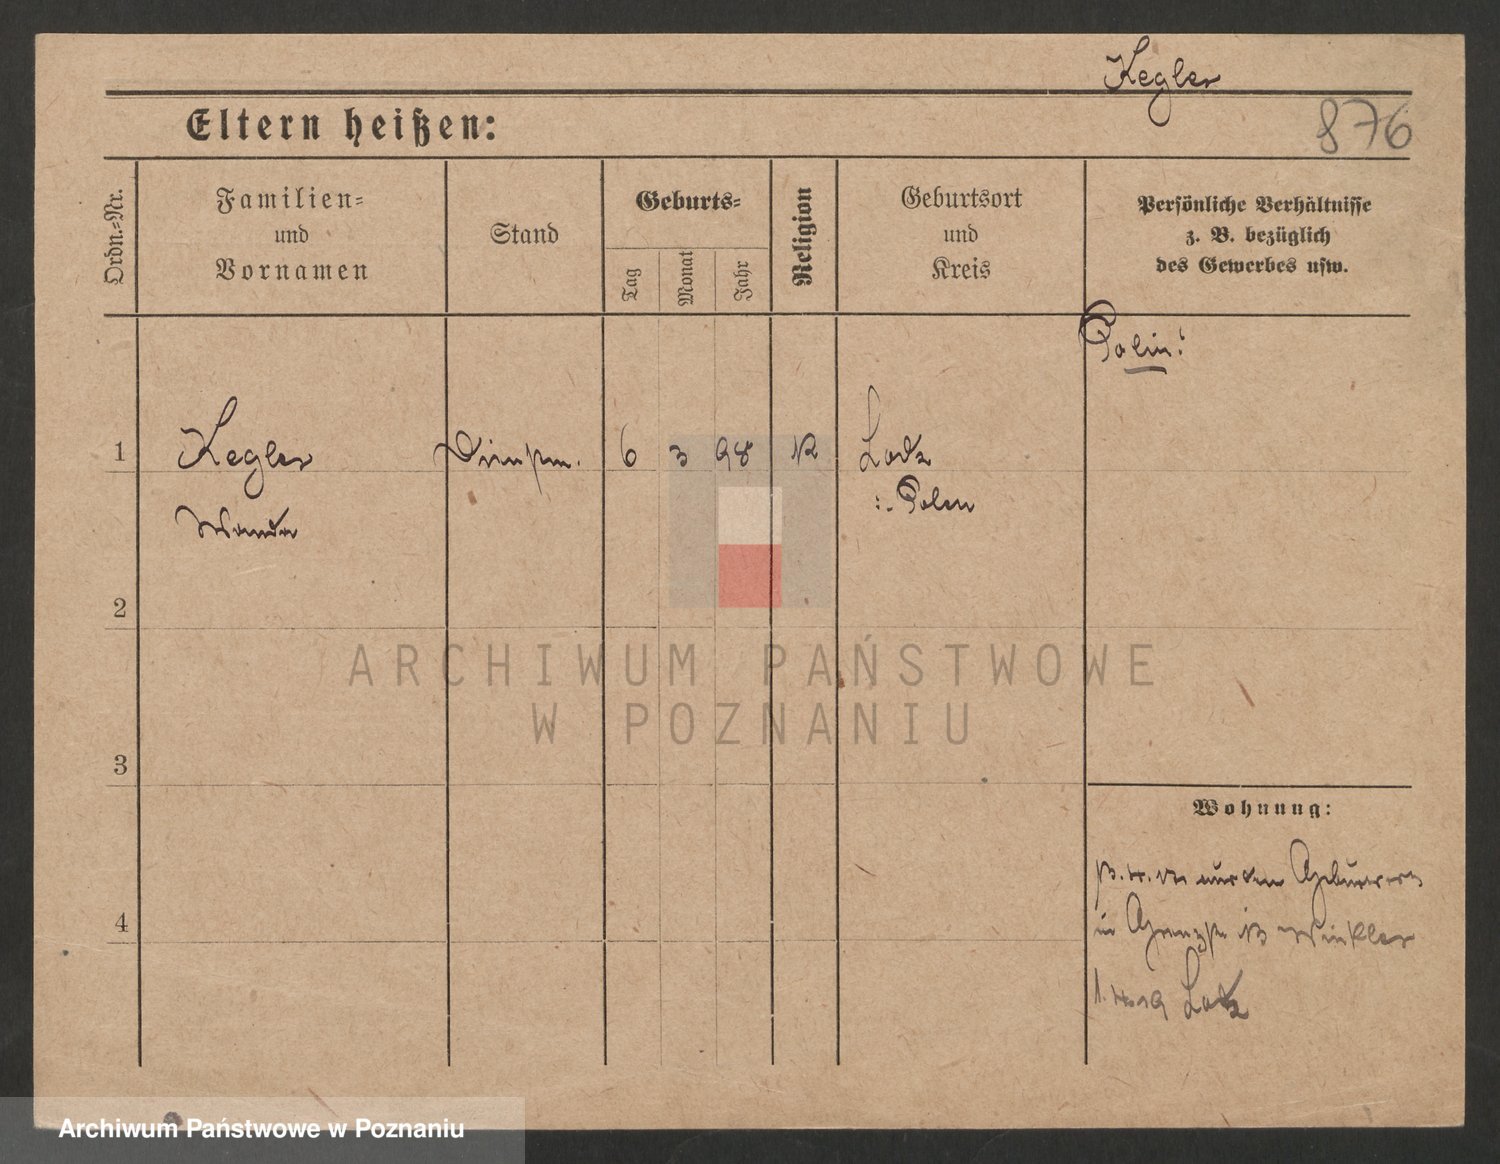 Kegler
Eltern heißen:
876
Ordn.-Nr.
Familien-
und
Vornamen
Stand
Geburts-
Tag
Monat
Jahr
Religion
Geburtsort
und
Kreis
Persönliche Verhältnisse
z. B. bezüglich
des Gewerbes usw.
Polin!
1
Kegler
6 3 98
Lodz
Wanda
Polen
2
ARCHIWUM PAŃSTWOWE
W POZNANIU
3
Wohnung:
4
in
Winkler
Lodz
Archiwum Państwowe w Poznaniu